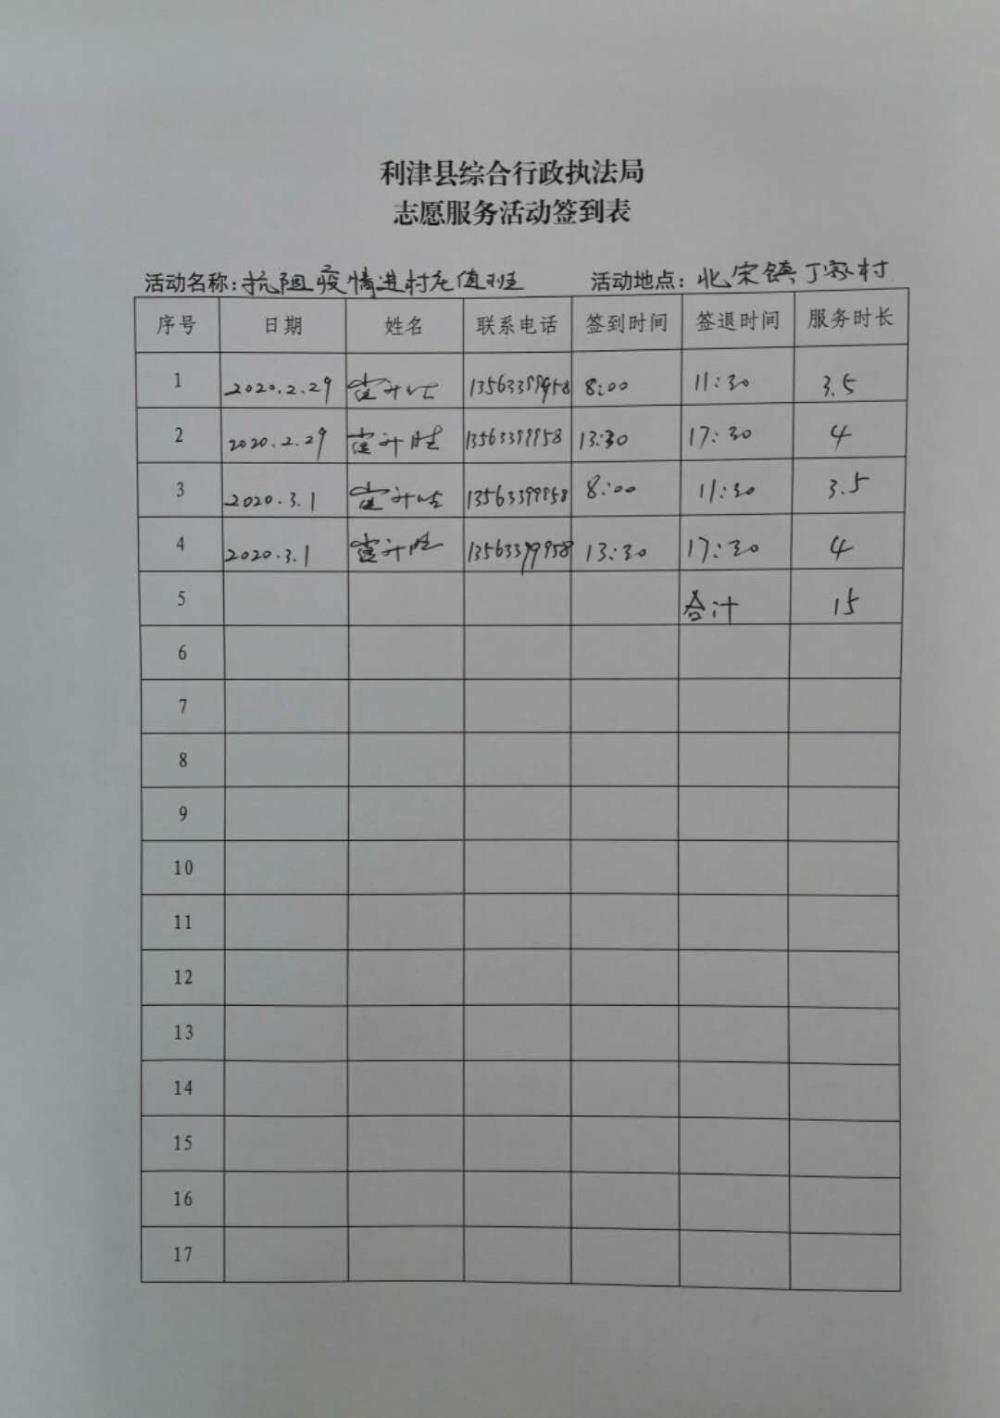 利津县综合行政执法局
志愿服务活动签到表
活动名称:抗阻疫情进村在值班 活动地点:北宋镇丁家村
序号 日期 姓名 联系电话 签到时间 签退时间 服务时长
1 2020.2.29 13563399958 8:00 11:30 3.5
2 2020.2.29 13563399958 13:30 17:30 4
3 2020.3.1 13563399958 8:00 11:30 3.5
4 2020.3.1 13563399958 13:30 17:30 4
5 合计 15
6
7
8
9
10
11
12
13
14
15
16
17